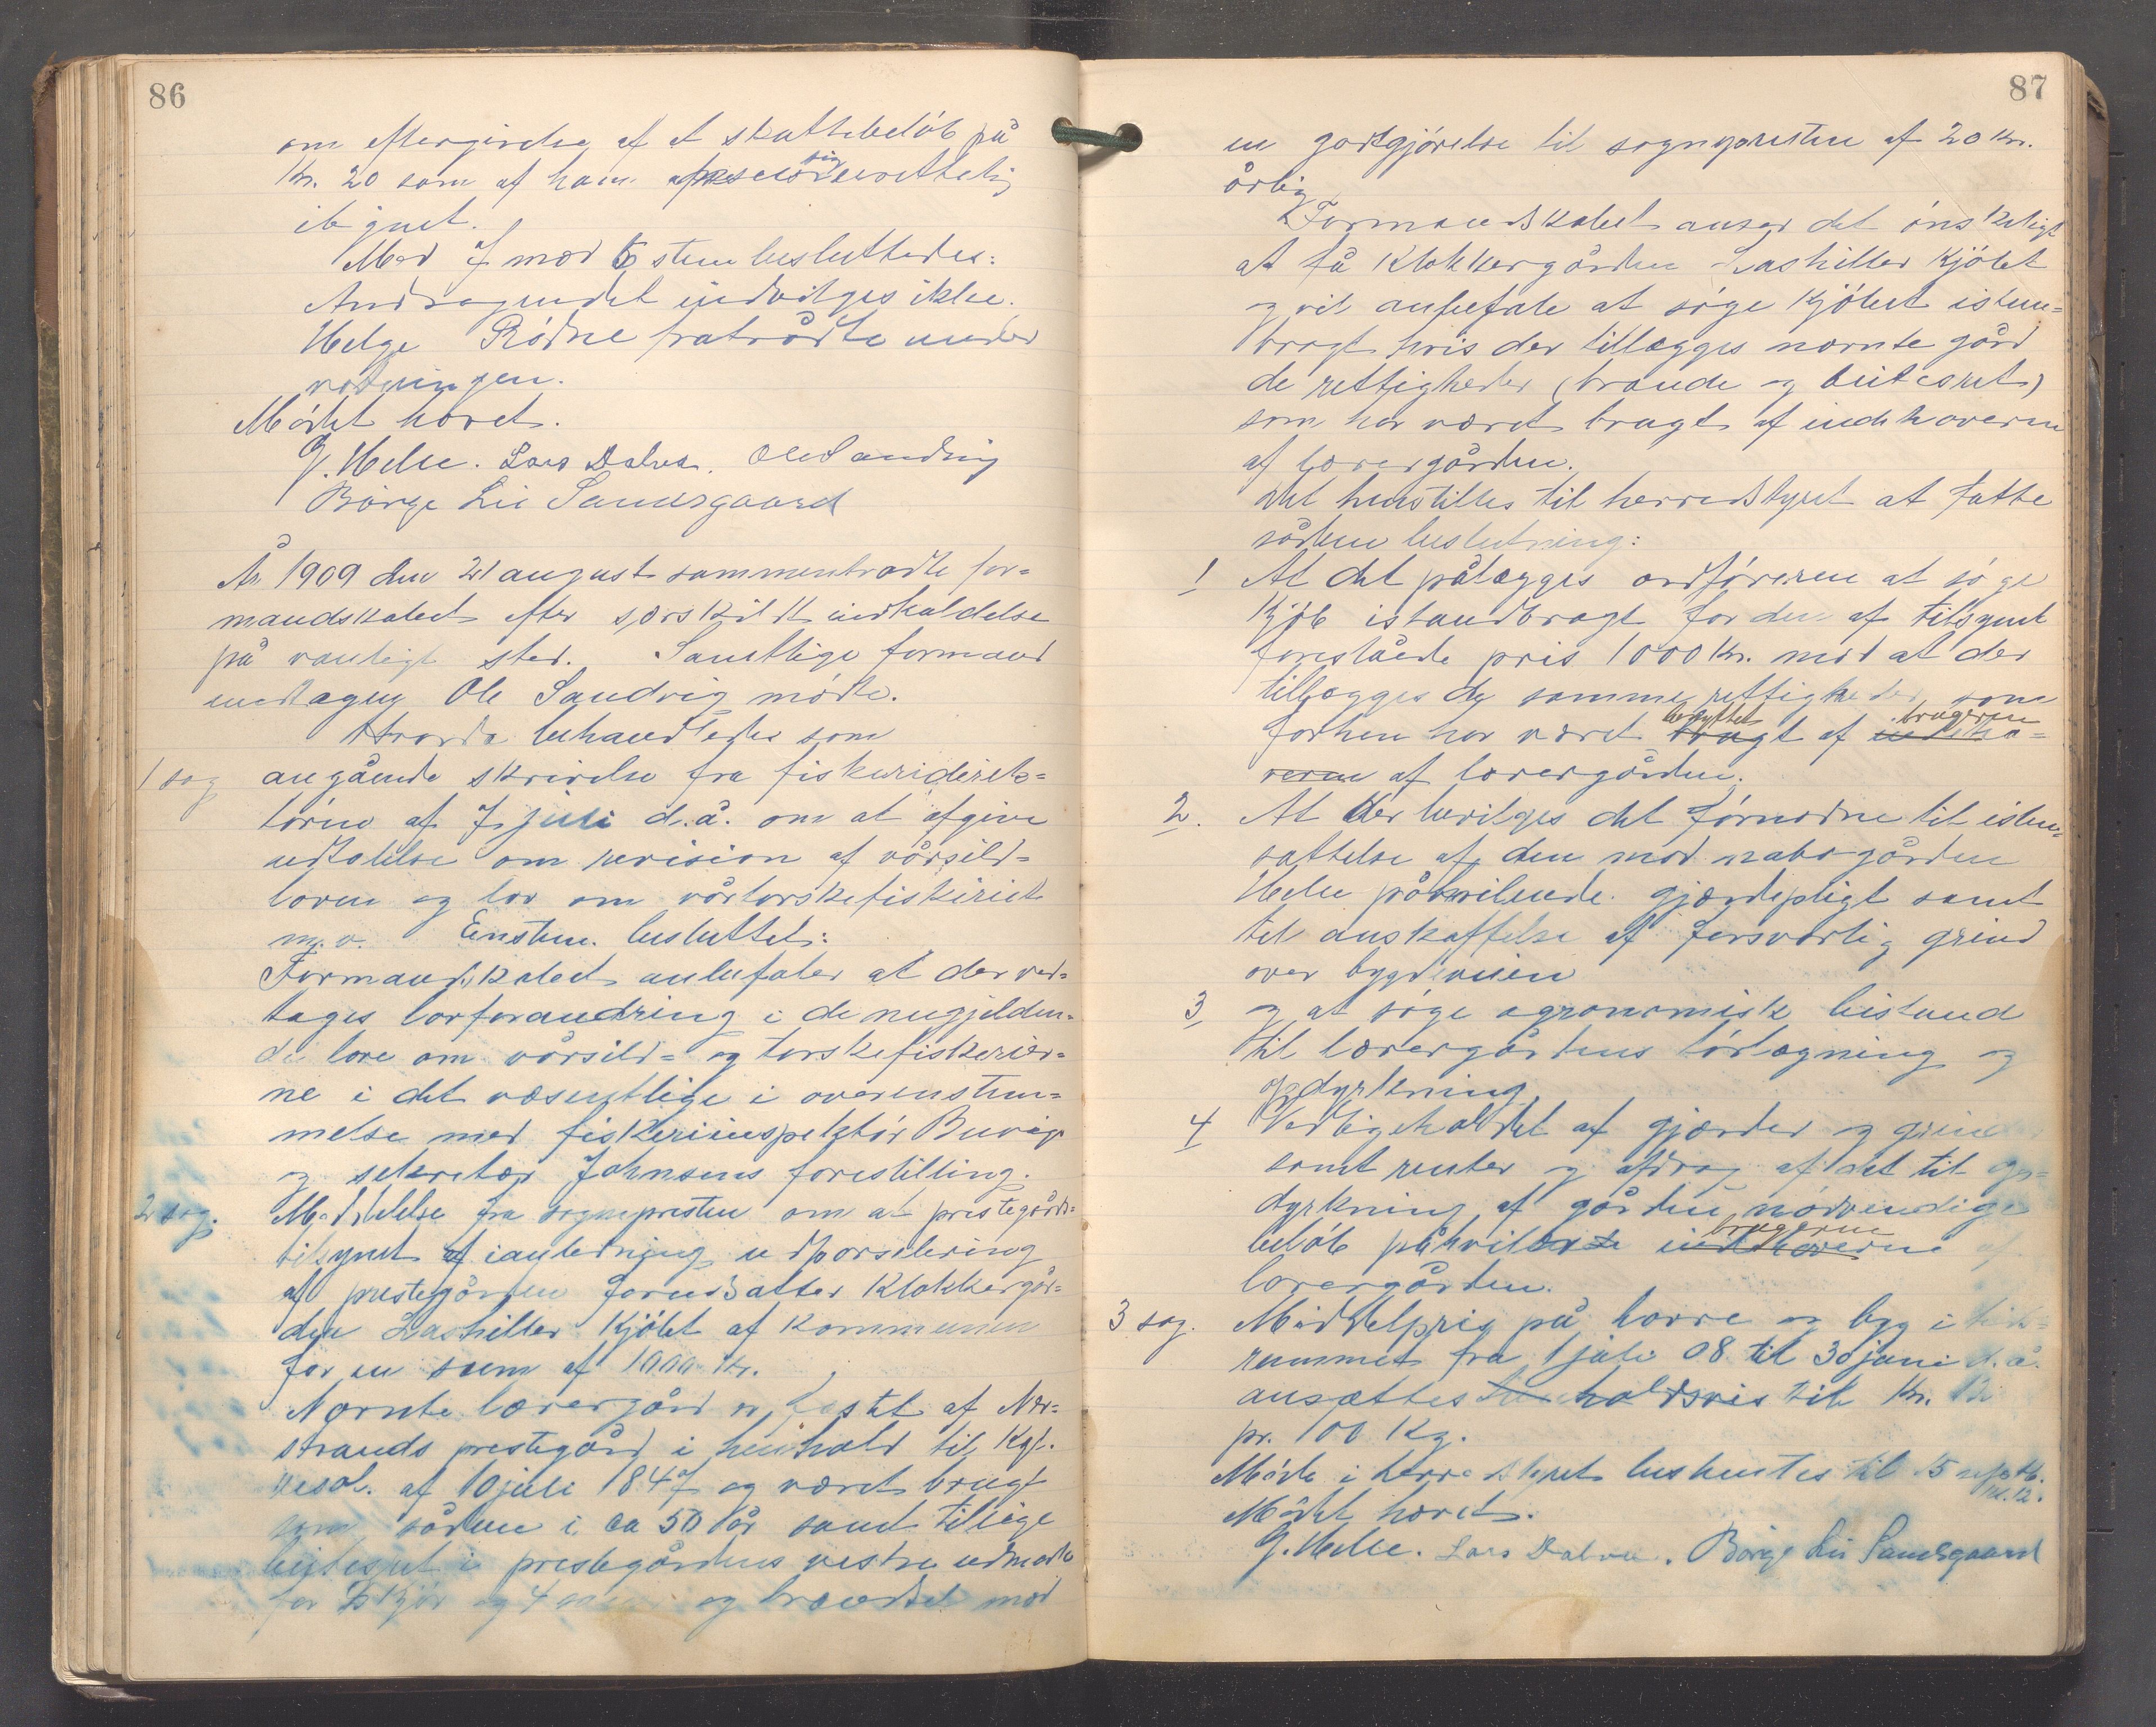 86
om eftergivelse af et skattebeløb på
Kr. 20 som af ham sig urettelig
ilignet.
Med 7 mod 5 stem. besluttedes:
Andragendet indvilges ikke.
Helge Rødne fratrådte under
votringen.
Mødet hævet.
G. Helle. Lars Dalva. Ole Sandvig
Børge Lie Sandsgaard
År 1909 den 21 august sammentrådte for-
mandskabet efter særskilt indkaldelse
på vanligt sted. Samtlige formænd
undtagen Ole Sandvig mødte.
Hvorda behandledes som
1 sag angående skrivelse fra fiskeridirek-
tøren af 7 juli d.å. om at afgive
udtalelse om revision af vårsild-
loven og lov om vårtorskefiskeriet
m.v. Enstem. besluttet:
Formandskabet anbefaler at der ved-
tages lovforandring i de nugjelden-
de love om vårsild- og torskefiskerier-
ne i det væsentlige i overenstem-
melse med fiskeriinspektør Buvigs
og sekretær Johnsens forestilling.
2 sag. Meddelelse fra sognepresten om at prestegårds-
tilsynet i anledning udparselering
af prestegården forudsatter Klokkergår-
den Lashiller kjøbt af kommunen
for en sum af 1000 kr.
Nævnte lærergård er fæstet af Ner-
strands prestegård i henhold til Kgl.
resol. af 10 juli 1847 og været brugt
som sådan i ca 50 år samt tillige
beitesret i prestegårdens vestre udmark
for kjør og 4 og brændsel mod
87
en godtgjørelse til sognepresten af 20 kr.
årlig
Formandskabet anser det ønskeligt
at få Klokkergården Lashiller kjøbt
og vil anbefale at søge kjøbet istand-
bragt hvis der tillægges nævnte gård
de rettigheder (brænde og beitesret)
som har været brugt af indehaveren
af lærergården.
Det henstilles til herredstyret at fatte
sådan beslutning:
1 At det pålægges ordføreren at søge
kjøb istandbragt for den af tilsynet
foreslåede pris 1000 kr. mod at der
tillægges de samme rettigheder som
forhen har været benyttet brugt af brugeren indeha-
veren af lærergården.
2. At der bevilges det fornødne til istand-
sættelse af den mod nabogården
Helle påhvilende gjærdepligt samt
til anskaffelse af forsvarlig grind
over bygdeveien
3 og at søge agronomisk bistand
til lærergårdens tørlægning og
opdyrkning
4 Vedligeholdet af gjærder og grind
samt renter og afdrag af det til op-
dyrkning af gården nødvendige
beløb påhviler brugerne indehaverne af
lærergården.
3 sag. Middelpris på havre og byg i tids-
rummet fra 1 juli 08 til 30 juni d.å.
ansættes holdsvis til Kr. 12
pr. 100 Kg.
Møde i herredstyret beskuttes til 15 sept.
kl. 12.
Mødet hævet.
G. Helle. Lars Dalva. Børge Lie Sandsgaard